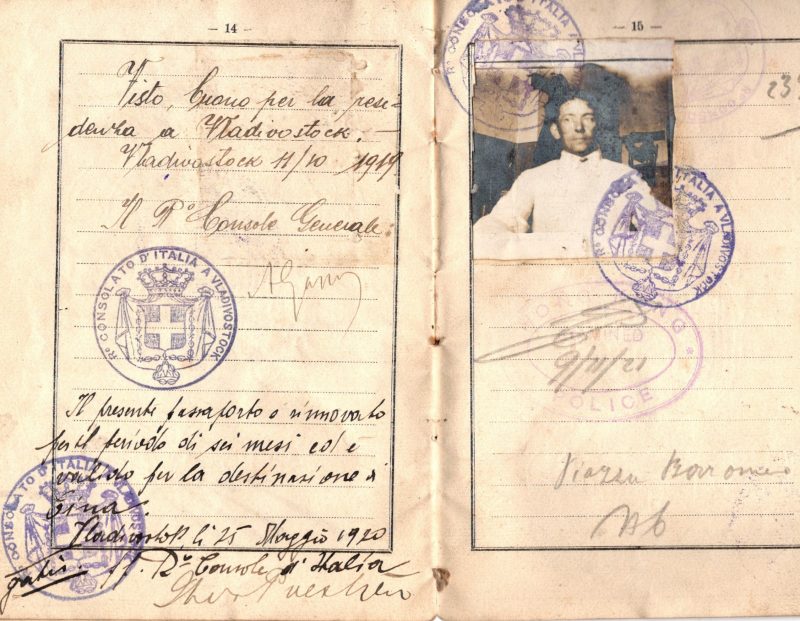 14
Visto, buono per la resi-
denza a Vladivostock.
Vladivostock 11/10 1919
Il R° Console Generale
R° CONSOLATO D'ITALIA A VLADIVOSTOCK
Il presente passaporto è rinnovato
per il periodo di sei mesi ed è
valido per la destinazione di
Cina.
Vladivostok li 25 Maggio 1920
gratis. Il R° Console d'Italia
R° CONSOLATO D'ITALIA A VLADIVOSTOCK
15
R° CONSOLATO D'ITALIA A
23
R° CONSOLATO D'ITALIA A VLADIVOSTOCK
HONG KONG
9/11/21
POLICE
Piazza Borromeo